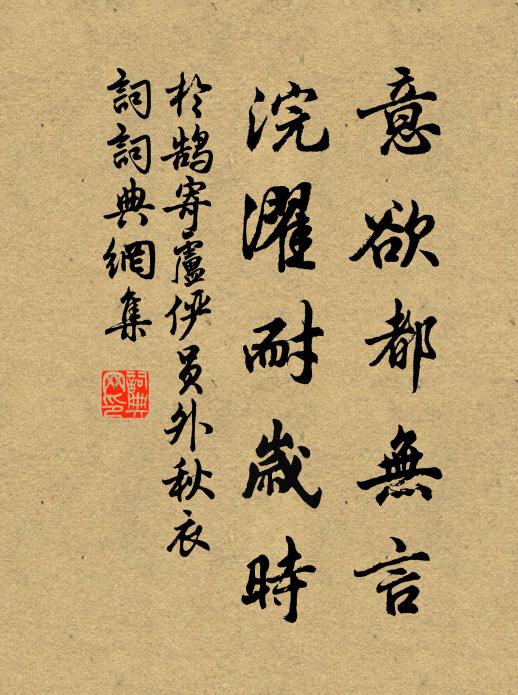 意欲都無言
浣濯耐歲時
於鵠寄盧俨員外秋衣
詞詞典網集
詞典網印